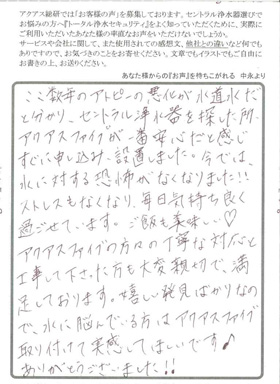 アクアス総研では「お客様の声」を募集しております。セントラル浄水器選びで
お悩みの方へ『トータル浄水セキュリティ』をよく知っていただくために、実際に
ご利用いただいたあなた様の率直なお声をいただけないでしょうか。
サービスや会社に関して、また使用されての感想文、他社との違いなど何でも
ありますので、お気づきのことをお寄せください。文章でもイラストでもご自由に
お書きの上、お送りください。
あなた様からの『お声』を待ちこがれる 中永より
ここ数年のアトピーの悪化が水道水だ
と分かり、セントラル浄化器を探した所、
アクアスファイブが一番安心だと感じ
すぐに申し込み、設置しました。今では、
水に対する恐怖がなくなりました!!
ストレスもなくなり、毎日気持ち良く
過ごせています。ご飯も美味しい♡
アクアスファイブの方々の丁寧な対応と
工事して下さった方も大変親切で、満
足しております。嬉しい発見ばかりなの
で、水に悩んでいる方はアクアスファイブ
取り付けて実感してほしいです♪
ありがとうございました!!